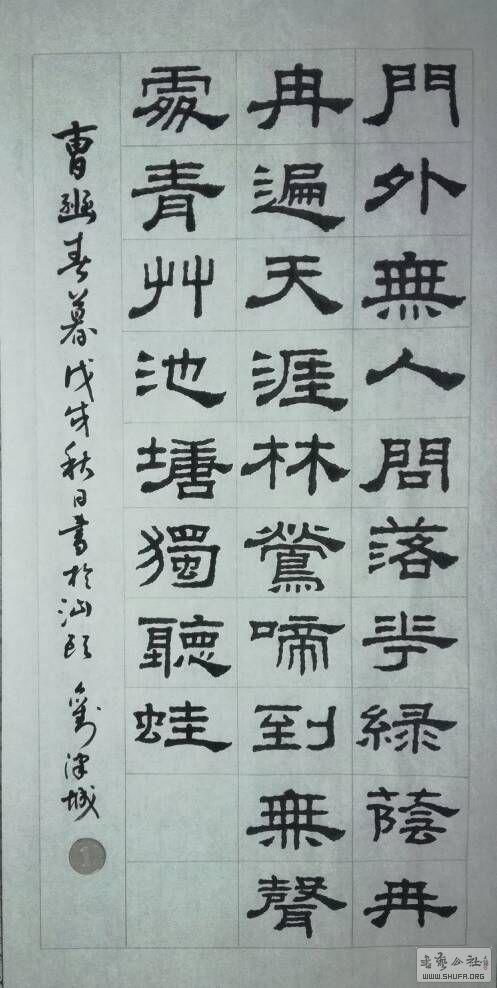 門外無人問落花綠蔭冉
冉遍天涯林鶯啼到無聲
處青艸池塘獨聽蛙
曹豳春暮戊戌秋日書於汕頭 劉澤城
书艺公社
WWW.SHUFA.ORG